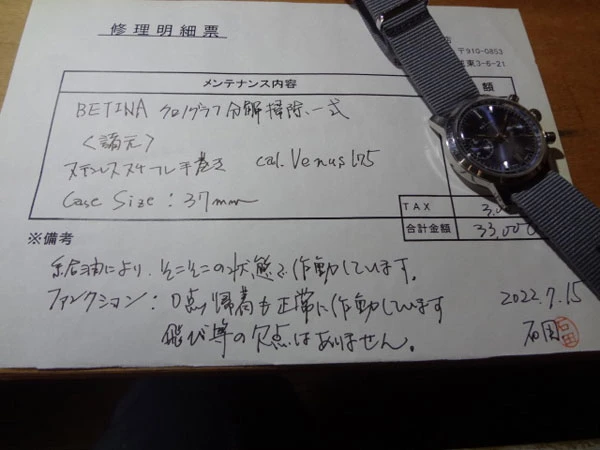 修理明細票
店
〒910-0853
東3-6-21
メンテナンス内容
額
BETINA クロノグラフ分解掃除、一式
〈諸元〉
ステンレススチール手巻き cal. Venus 175
Case Size : 37mm
TAX
合計金額 33,000
※備考
給油により、そこそこの状態で作動しています。
ファンクション : 0点帰着も正常に作動しています
飛び等の欠点はありません。
2022.7.15
石田